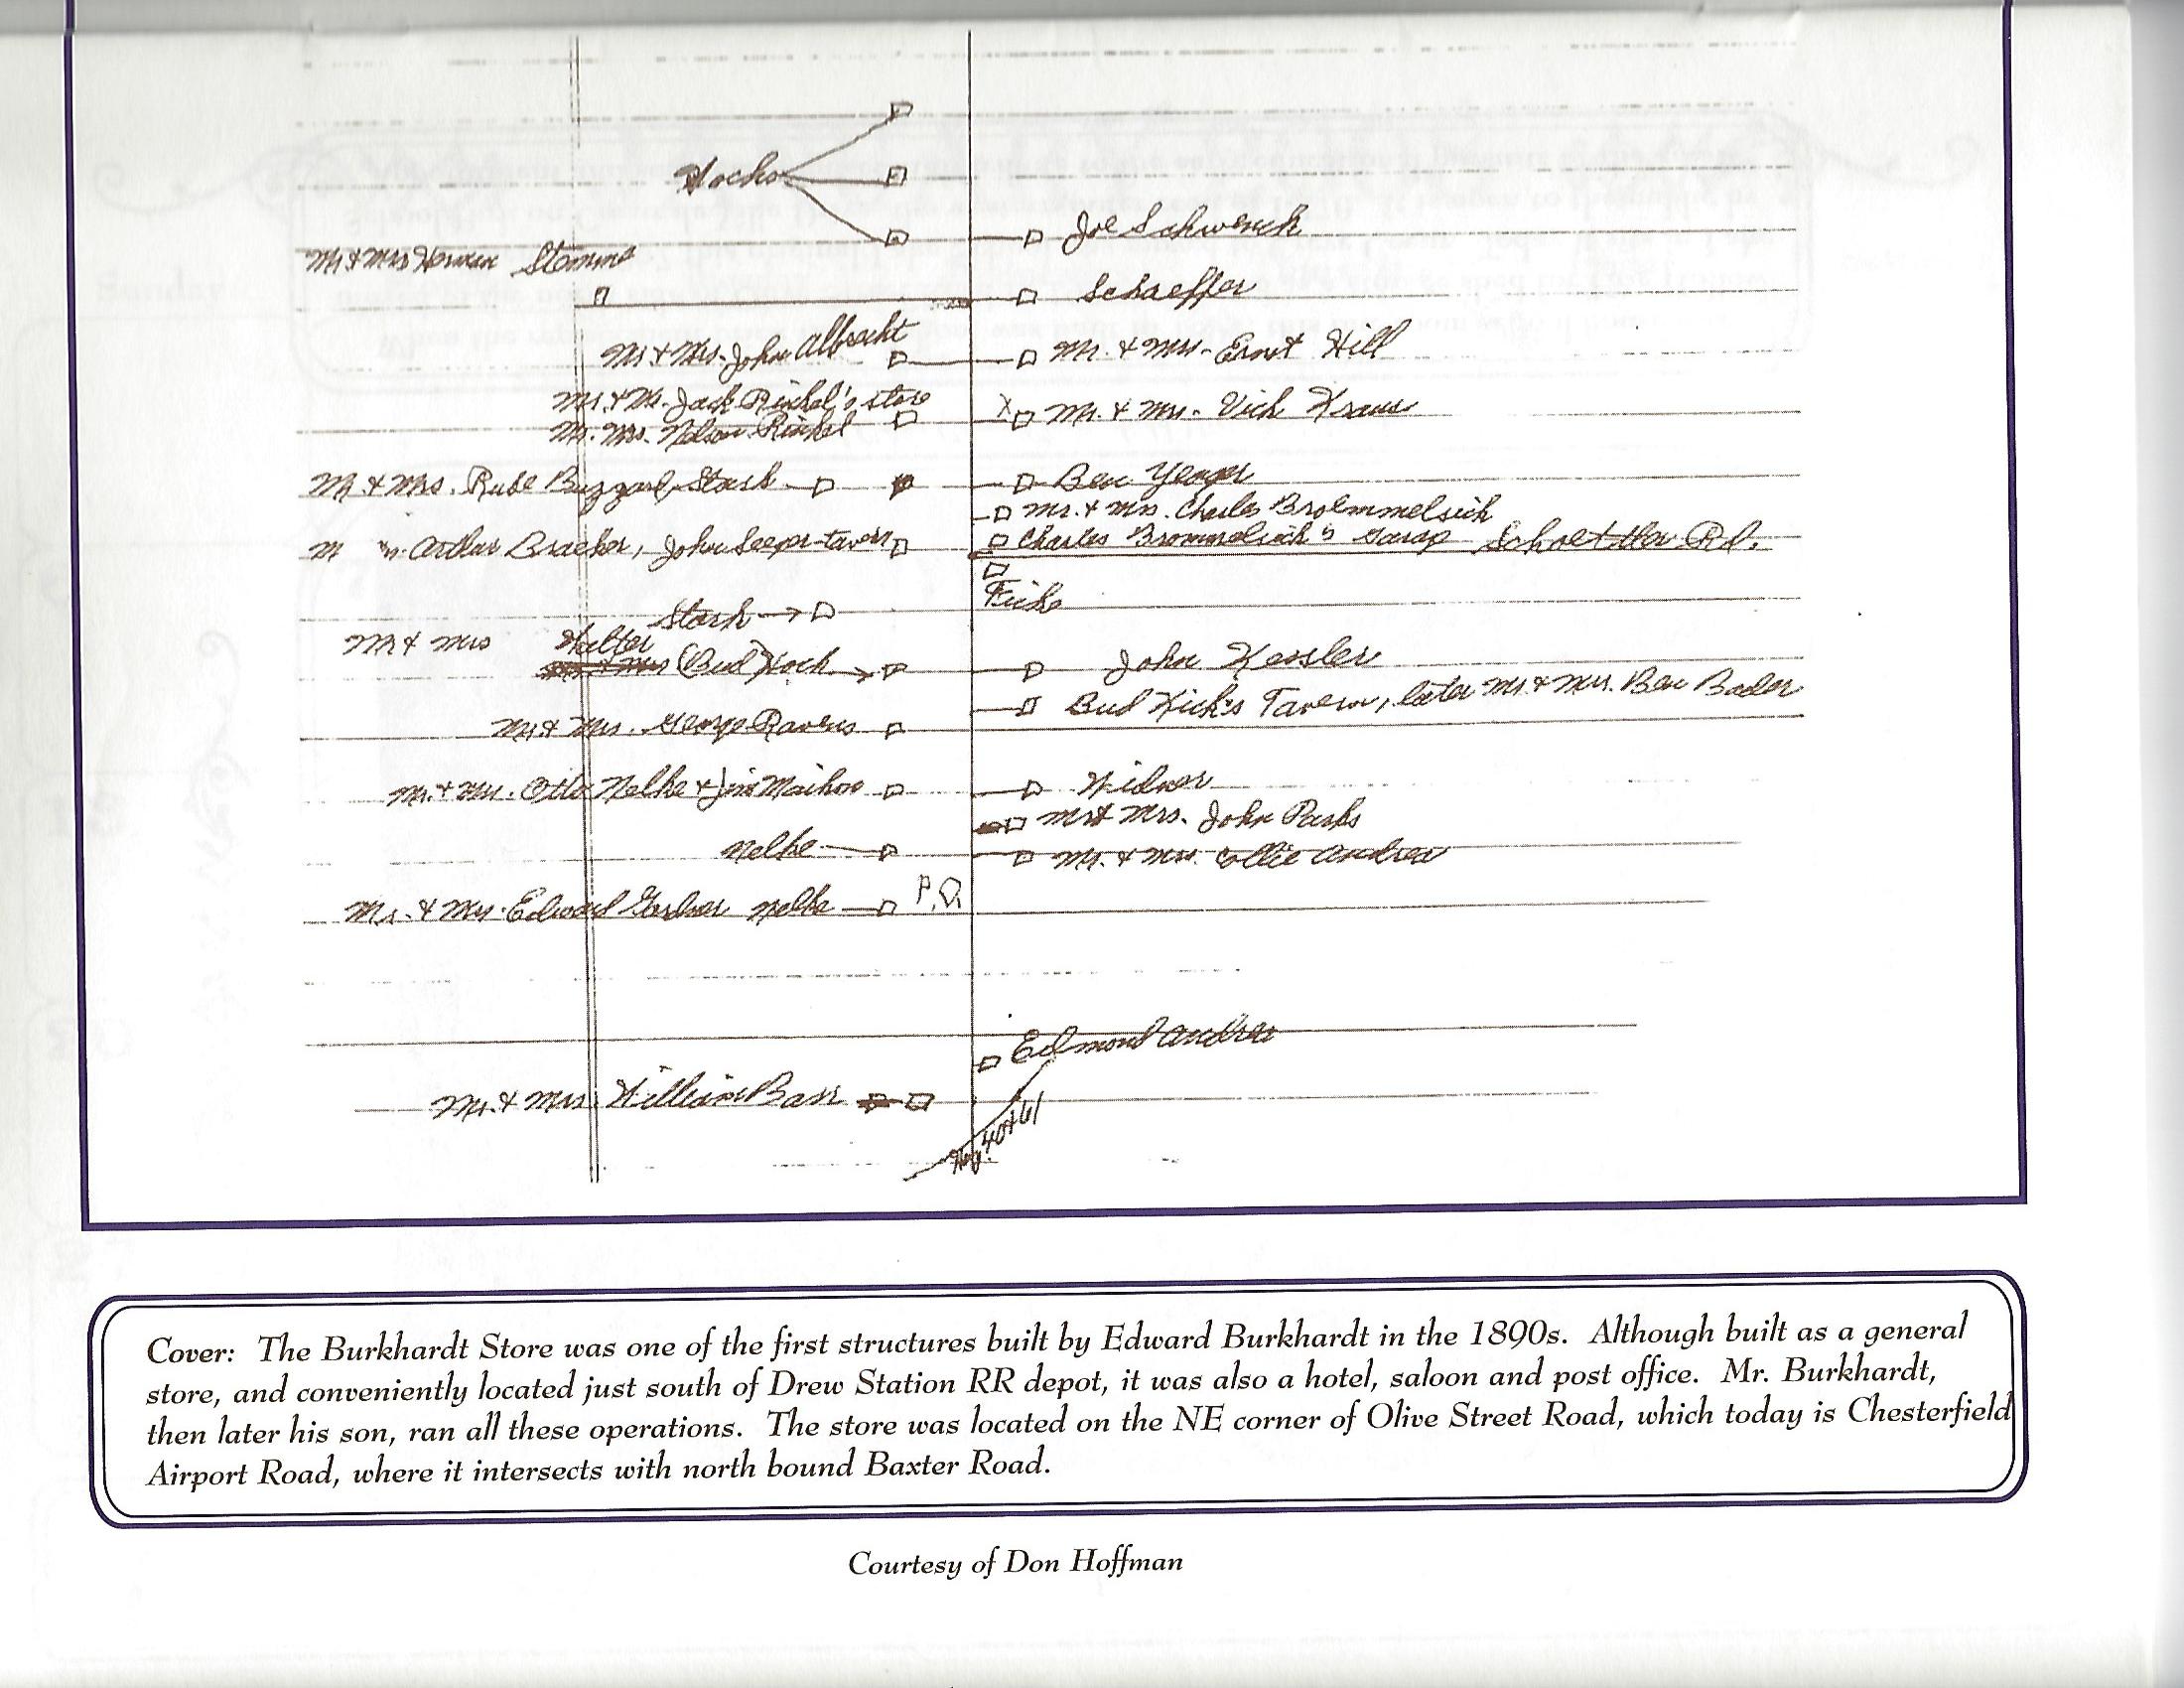 Hochs
Joe Schwenck
Mr & Mrs Herman Stemme
Schaeffer
Mr & Mrs. John Albrecht
Mr. & Mrs. Ernst Hill
Mr. & Mr. Jack Rinkel's store
Mr. & Mrs. Vick Kraus
Mr. Mrs. Nelson Rinkel
Mr & Mrs. Rube Buzzard, Stark
Ben Yeager
Mr. & Mrs. Charles Broemmelsick
M Arthur Bracker, John Seeger-tavern
Charles Brommelsick's Garage Schoettler Rd.
Ficke
Stark
Mr & Mrs Walter
(Bud) Hoch
John Kessler
Bud Kick's Tavern, later Mr. & Mrs. Ben Bader
Mr & Mrs. George Ravens
Mr. & Mrs. Otto Nelke & Jim
Widner
Mr & Mrs. John Parks
Nelke
Mr. & Mrs. Ollie Andrea
P.O.
Mr. & Mrs. Edward Nelke
Edmond Andrea
Mr. & Mrs. William Barr
Hwy. 40 & 61
Cover: The Burkhardt Store was one of the first structures built by Edward Burkhardt in the 1890s. Although built as a general
store, and conveniently located just south of Drew Station RR depot, it was also a hotel, saloon and post office. Mr. Burkhardt,
then later his son, ran all these operations. The store was located on the NE corner of Olive Street Road, which today is Chesterfield
Airport Road, where it intersects with north bound Baxter Road.
Courtesy of Don Hoffman